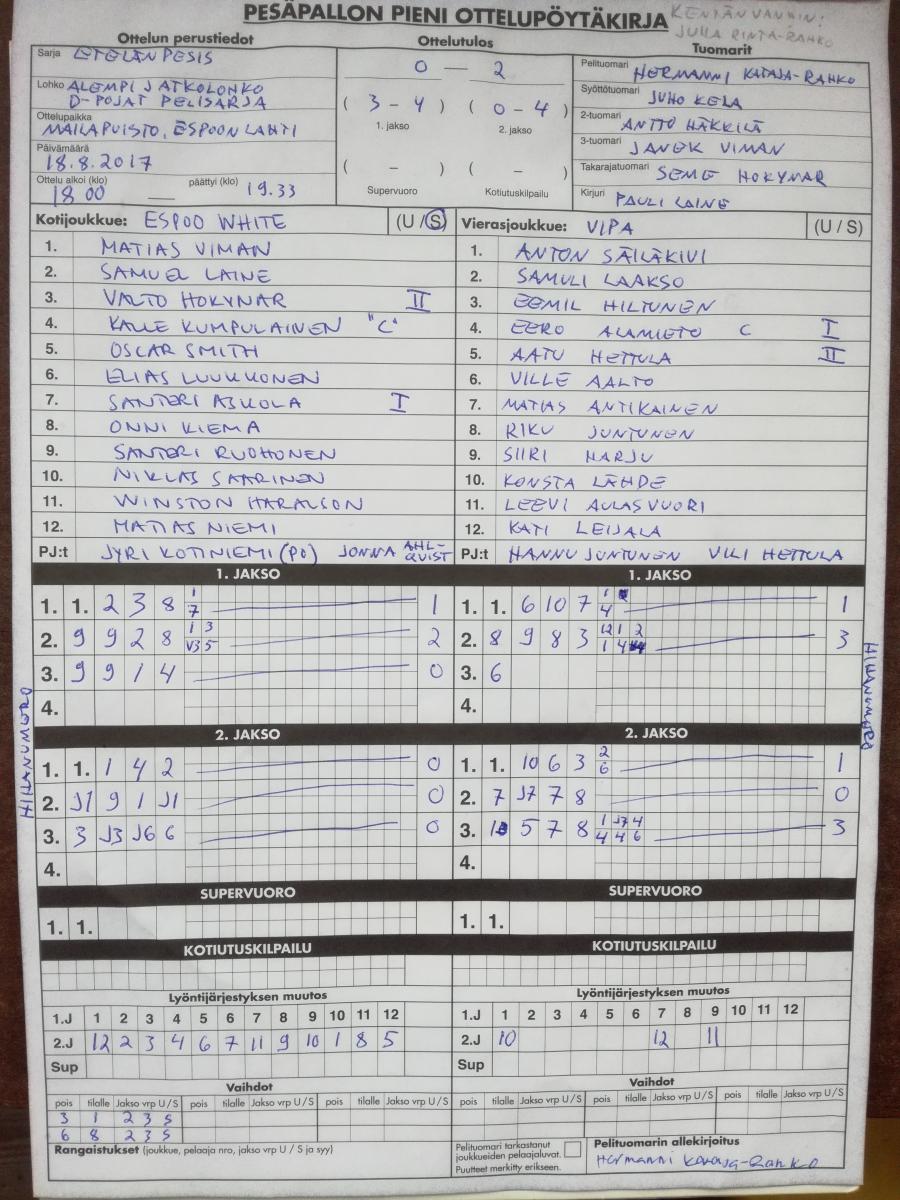 PESÄPALLON PIENI OTTELUPÖYTÄKIRJA
KENTÄN VANHIN:
JUHA RINTA-RAHKO
Ottelun perustiedot Ottelutulos Tuomarit
Sarja ETELÄN PESIS
Lohko ALEMPI JATKOLOHKO
D-POJAT PELISARJA
Ottelupaikka
MAILAPUISTO, ESPOONLAHTI
Päivämäärä
18.8.2017
Ottelu alkoi (klo) 18 00 päättyi (klo) 19.33
0 — 2
( 3 - 4 ) ( 0 - 4 )
1. jakso 2. jakso
( - ) ( - )
Supervuoro Kotiutuskilpailu
Pelituomari HERMANNI KATAJA-RAHKO
Syöttötuomari JUHO KELA
2-tuomari ANTTO HÄKKILÄ
3-tuomari JANEK VIMAN
Takarajatuomari SEME HOKYNAR
Kirjuri PAULI LAINE
Kotijoukkue: ESPOO WHITE (U / S)
1. MATIAS VIMAN
2. SAMUEL LAINE
3. VALTO HOKYNAR II
4. KALLE KUMPULAINEN "C"
5. OSCAR SMITH
6. ELIAS LUUKKONEN
7. SANTERI ASKOLA I
8. ONNI KIEMA
9. SANTERI RUOHONEN
10. NIKLAS SAARINEN
11. WINSTON HARALSON
12. MATIAS NIEMI
PJ:t JYRI KOTINIEMI (PO) JONNA AHL-
QVIST
Vierasjoukkue: VIPA (U / S)
1. ANTON SÄILÄKIVI
2. SAMULI LAAKSO
3. EEMIL HILTUNEN
4. EERO ALAMIETO C I
5. AATU HETTULA II
6. VILLE AALTO
7. MATIAS ANTIKAINEN
8. RIKU JUNTUNEN
9. SIIRI HARJU
10. KONSTA LÄHDE
11. LEEVI AULASVUORI
12. KATI LEIJALA
PJ:t HANNU JUNTUNEN VILI HETTULA
HIHANUMERO
1. JAKSO
1. 1. 2 3 8 1 7 1
2. 9 9 2 8 1 3 V3 5 2
3. 9 9 1 4 0
4.
2. JAKSO
1. 1. 1 4 2 0
2. J1 9 1 J1 0
3. 3 J3 J6 6 0
4.
SUPERVUORO
1. 1.
KOTIUTUSKILPAILU
Lyöntijärjestyksen muutos
1.J 1 2 3 4 5 6 7 8 9 10 11 12
2.J 12 2 3 4 6 7 11 9 10 1 8 5
Sup
Vaihdot
pois tilalle Jakso vrp U/S pois tilalle Jakso vrp U/S pois tilalle Jakso vrp U/S
3 1 2 3 S
6 8 2 3 S
Rangaistukset (joukkue, pelaaja nro, jakso vrp U / S ja syy)
1. JAKSO
1. 1. 6 10 7 1 4 1
2. 8 9 8 3 12 1 2 1 4 3
3. 6
4.
HIHANUMERO
2. JAKSO
1. 1. 10 6 3 2 6 1
2. 7 J7 7 8 0
3. 5 7 8 1 J7 4 4 4 6 3
4.
SUPERVUORO
1. 1.
KOTIUTUSKILPAILU
Lyöntijärjestyksen muutos
1.J 1 2 3 4 5 6 7 8 9 10 11 12
2.J 10 12 11
Sup
Vaihdot
pois tilalle Jakso vrp U/S pois tilalle Jakso vrp U/S pois tilalle Jakso vrp U/S
Pelituomari tarkastanut
joukkueiden pelaajaluvat.
Puutteet merkitty erikseen.
Pelituomarin allekirjoitus
Hermanni Kataja-Rahko